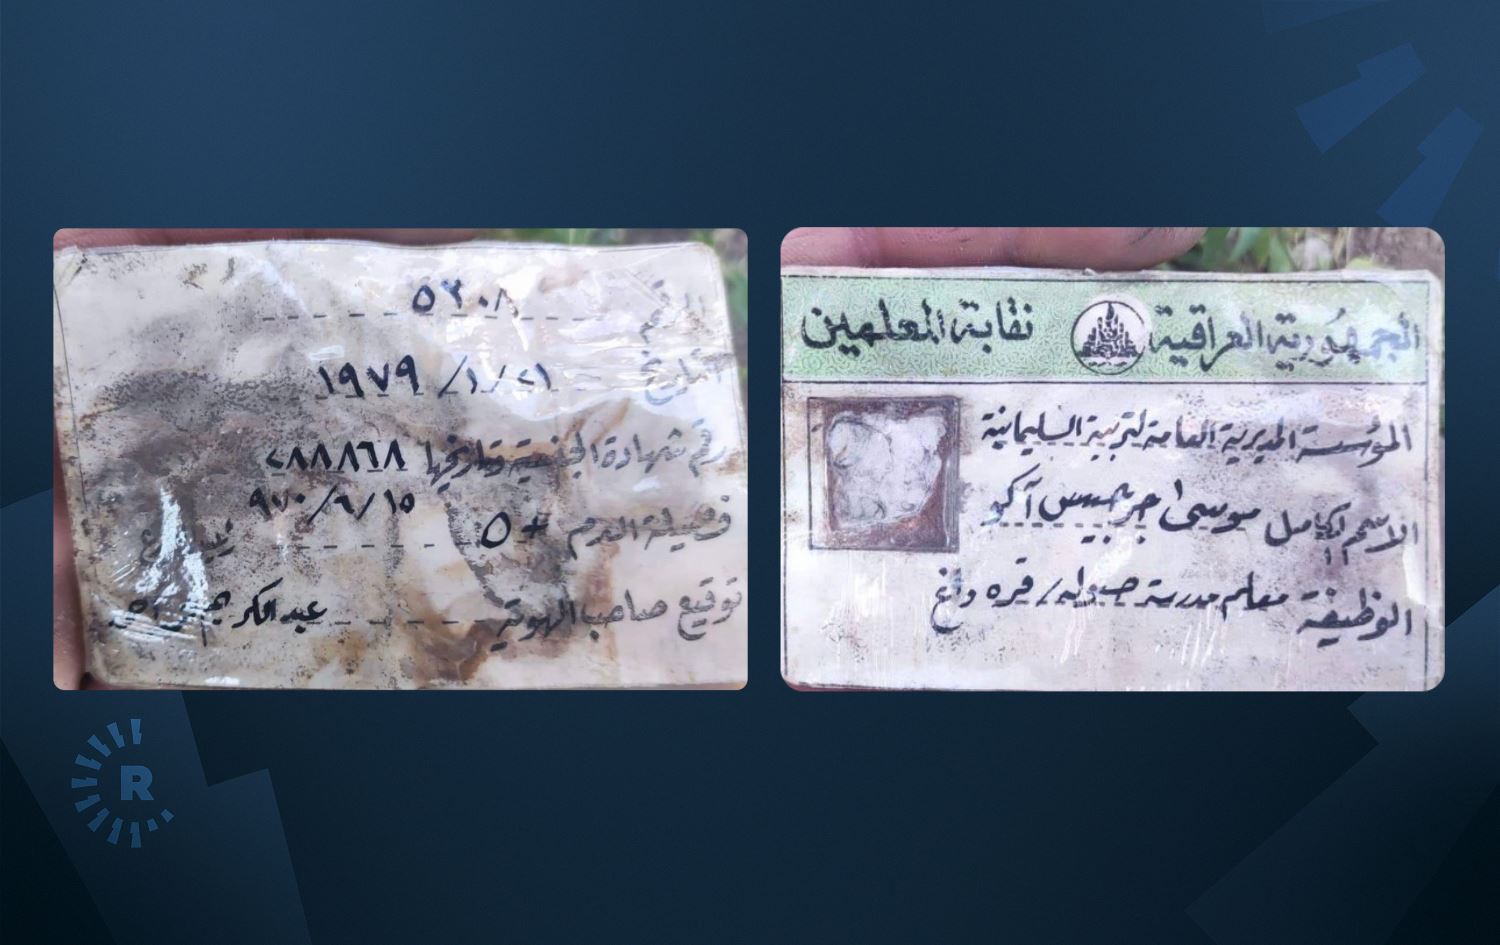 الرقم ٥٢٠٨
التاريخ ٢١/١/١٩٧٩
رقم شهادة الجنسية وتاريخها ٢٨٨٨٦٨
٩٧٠/٦/١٥
فصيلة الدم O+
توقيع صاحب الهوية عبدالكريم
الجمهورية العراقية نقابة المعلمين
المؤسسة المديرية العامة لتربية السليمانية
الاسم الكامل موسى جرجيس آكو
الوظيفة معلم مدرسة / قره داغ
R